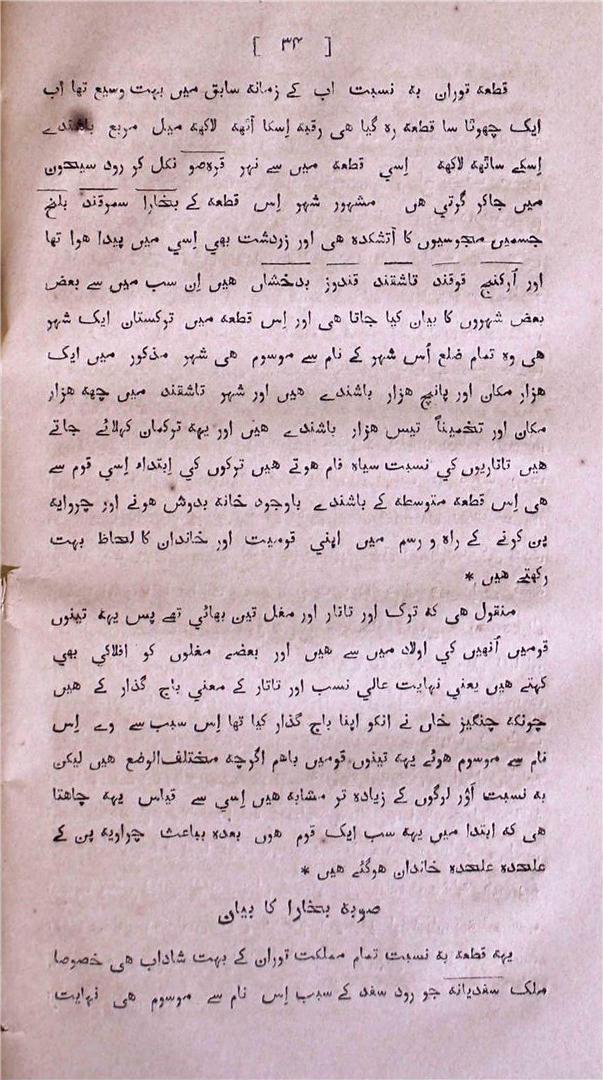 [ ۳۴ ]
قطعہ توران بہ نسبت اب کے زمانہ سابق میں بہت وسیع تھا اب
ایک چھوٹا سا قطعہ رہ گیا ھی رقبہ اِسکا آٹھہ لاکھہ میل مربع باشندے
اِسکے ساٹھہ لاکھہ اِسي قطعہ میں سے نہر قرہ‌صو نکل کر رود سیحون
میں جاکر گرتي ھی مشہور شہر اِس قطعہ کے بخارا سمرقند بلخ
جسمیں مجوسیوں کا آتشکدہ ھی اور زردشت بھي اِسي میں پیدا ھوا تھا
اور آرکنج قوقند تاشقند قندوز بدخشاں ھیں اِن سب میں سے بعض
بعض شہروں کا بیان کیا جاتا ھی اور اِس قطعہ میں ترکستان ایک شہر
ھی وہ تمام ضلع اُس شہر کے نام سے موسوم ھی شہر مذکور میں ایک
ھزار مکان اور پانچ ھزار باشندے ھیں اور شہر تاشقند میں چھہ ھزار
مکان اور تخمیناً تیس ھزار باشندے ھیں اور یہہ ترکمان کہلاتے جاتے
ھیں تاتاریوں کي نسبت سیاہ فام ھوتے ھیں ترکوں کي اِبتداء اِسي قوم سے
ھی اِس قطعہ متوسطہ کے باشندے باوجود خانہ بدوش ھونے اور چروایہ
پن کرنے کے راہ و رسم میں اپني قومیت اور خاندان کا لحاظ بہت
رکھتے ھیں *
منقول ھی کہ ترک اور تاتار اور مغل تین بھائي تھے پس یہہ تینوں
قومیں اُنھیں کي اولاد میں سے ھیں اور بعضے مغلوں کو افلاکي بھي
کہتے ھیں یعني نہایت عالي نسب اور تاتار کے معني باج گذار کے ھیں
چونکہ چنگیز خاں نے انکو اپنا باج گذار کیا تھا اِس سبب سے وے اِس
نام سے موسوم ھوئے یہہ تینوں قومیں باھم اگرچہ مختلف‌الوضع ھیں لیکن
بہ نسبت اَوْر لوگوں کے زیادہ تر مشابہ ھیں اِسي سے قیاس یہہ چاھتا
ھی کہ ابتدا میں یہہ سب ایک قوم ھوں بعدہ بباعث چراویہ پن کے
علحدہ علحدہ خاندان ھوگئے ھیں *
صوبہ بخارا کا بیان
یہہ قطعہ بہ نسبت تمام مملکت توران کے بہت شاداب ھی خصوصا
ملک سغدیانہ جو رود سغد کے سبب اِس نام سے موسوم ھی نہایت